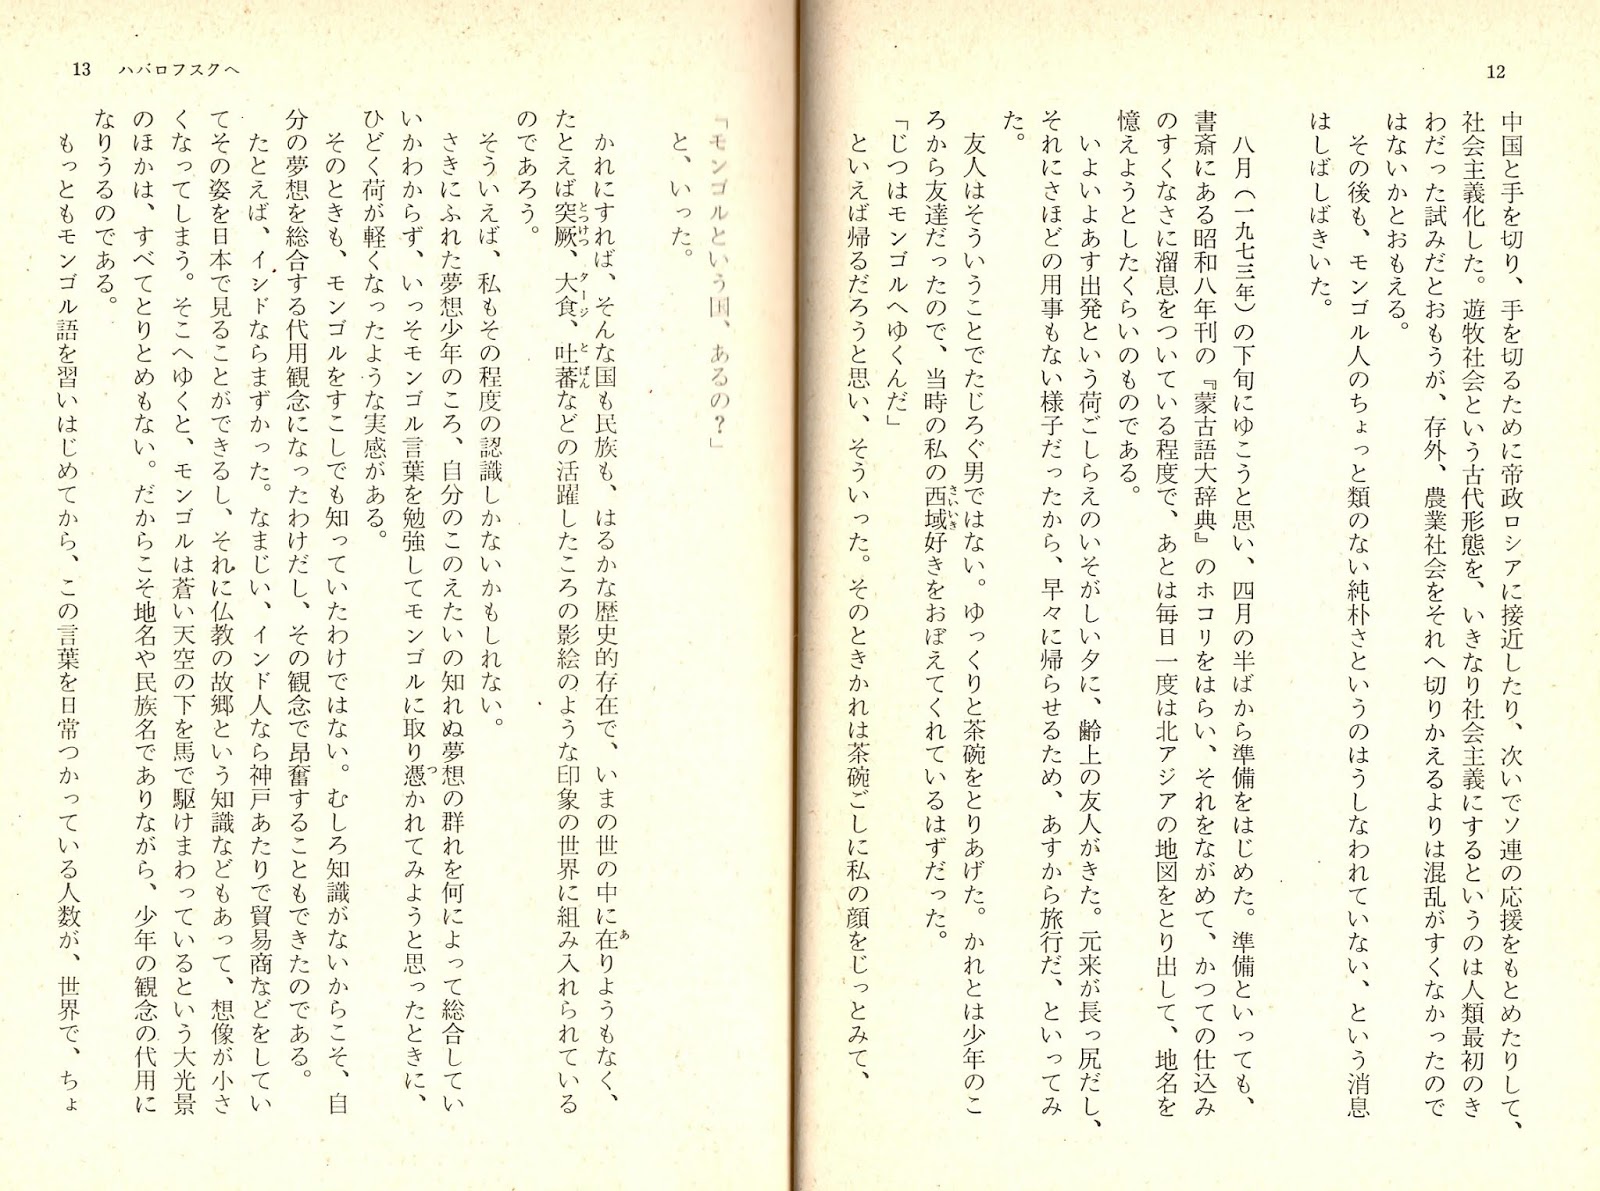 12
中国と手を切り、手を切るために帝政ロシアに接近したり、次いでソ連の応援をもとめたりして、
社会主義化した。遊牧社会という古代形態を、いきなり社会主義にするというのは人類最初のき
わだった試みだとおもうが、存外、農業社会をそれへ切りかえるよりは混乱がすくなかったので
はないかとおもえる。
その後も、モンゴル人のちょっと類のない純朴さというのはうしなわれていない、という消息
はしばしばきいた。
八月(一九七三年)の下旬にゆこうと思い、四月の半ばから準備をはじめた。準備といっても、
書斎にある昭和八年刊の『蒙古語大辞典』のホコリをはらい、それをながめて、かつての仕込み
のすくなさに溜息をついている程度で、あとは毎日一度は北アジアの地図をとり出して、地名を
憶えようとしたくらいのものである。
いよいよあす出発という荷ごしらえのいそがしい夕に、齢上の友人がきた。元来が長っ尻だし、
それにさほどの用事もない様子だったから、早々に帰らせるため、あすから旅行だ、といってみ
た。
友人はそういうことでたじろぐ男ではない。ゆっくりと茶碗をとりあげた。かれとは少年のこ
ろから友達だったので、当時の私の西域好きをおぼえてくれているはずだった。
さいいき
「じつはモンゴルへゆくんだ」
といえば帰るだろうと思い、そういった。そのときかれは茶碗ごしに私の顔をじっとみて、
13 ハバロフスクへ
「モンゴルという国、あるの?」
と、いった。
かれにすれば、そんな国も民族も、はるかな歴史的存在で、いまの世の中に在りようもなく、
あ
たとえば突厥、大食、吐蕃などの活躍したころの影絵のような印象の世界に組み入れられている
とつけつ タージ とばん
のであろう。
そういえば、私もその程度の認識しかないかもしれない。
さきにふれた夢想少年のころ、自分のこのえたいの知れぬ夢想の群れを何によって総合してい
いかわからず、いっそモンゴル言葉を勉強してモンゴルに取り憑かれてみようと思ったときに、
つ
ひどく荷が軽くなったような実感がある。
そのときも、モンゴルをすこしでも知っていたわけではない。むしろ知識がないからこそ、自
分の夢想を総合する代用観念になったわけだし、その観念で昂奮することもできたのである。
たとえば、インドならまずかった。なまじい、インド人なら神戸あたりで貿易商などをしてい
てその姿を日本で見ることができるし、それに仏教の故郷という知識などもあって、想像が小さ
くなってしまう。そこへゆくと、モンゴルは蒼い天空の下を馬で駆けまわっているという大光景
のほかは、すべてとりとめもない。だからこそ地名や民族名でありながら、少年の観念の代用に
なりうるのである。
もっともモンゴル語を習いはじめてから、この言葉を日常つかっている人数が、世界で、ちょ